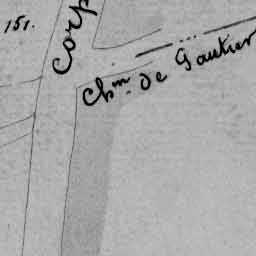 151.
Corp
Chm. de Gautier